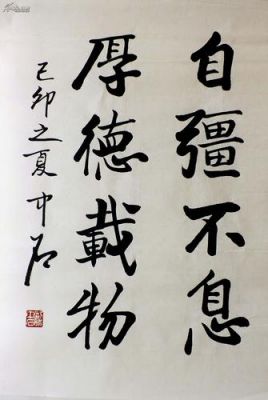 自彊不息
厚德載物
己卯之夏中石